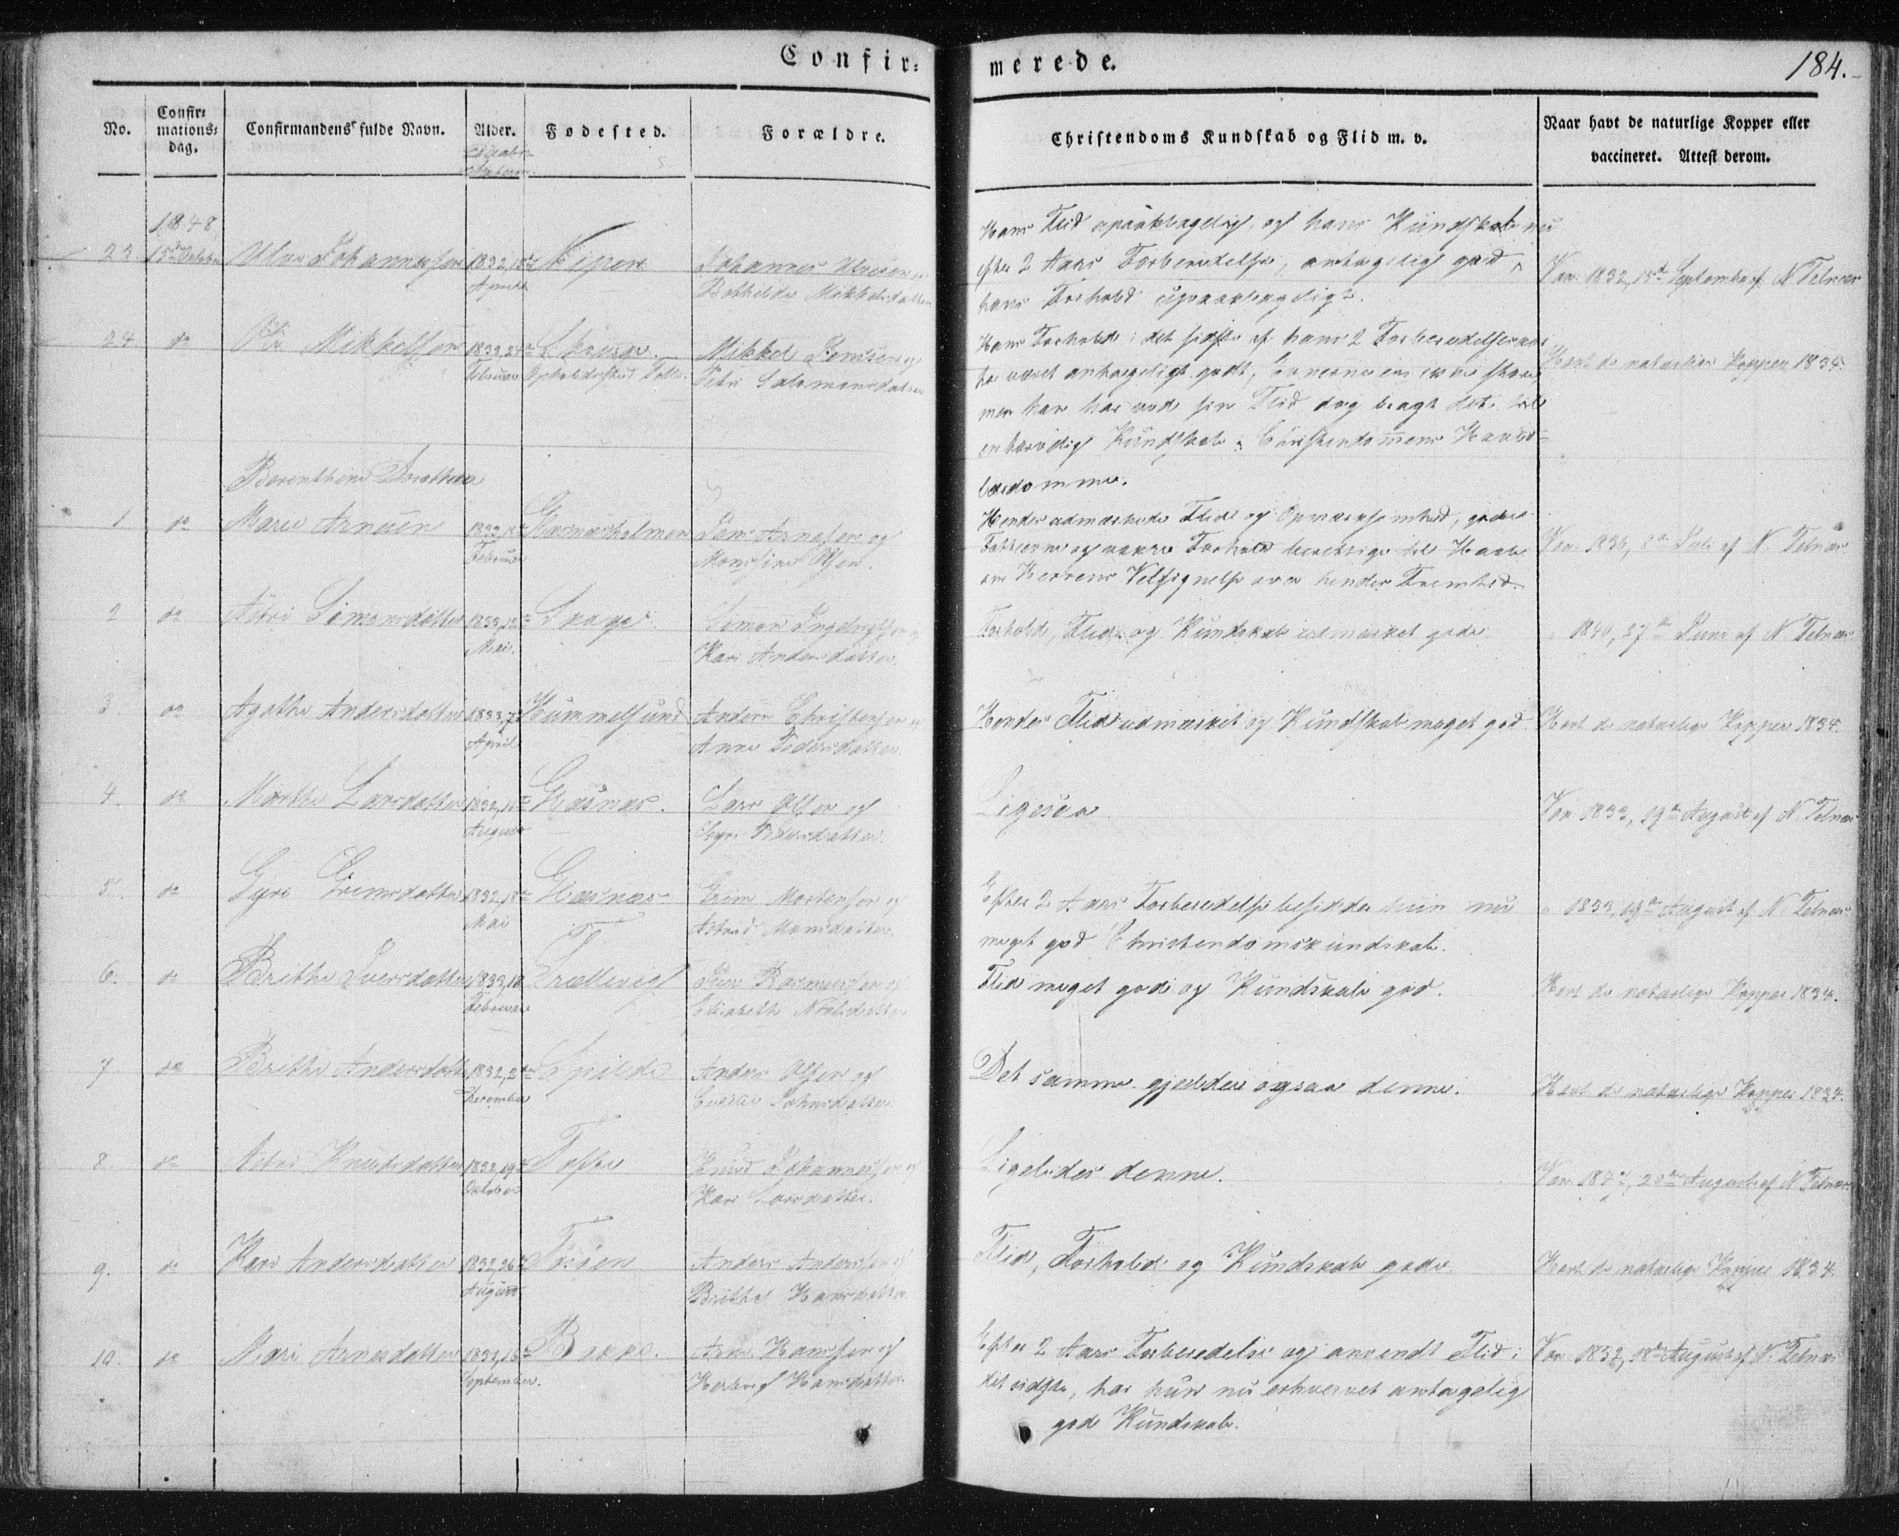 Confir-
merede.
184.
No.
Confir-
mations-
dag.
Confirmandens fulde Navn.
Alder.
Fødested.
Forældre.
Christendoms Kundskab og Flid m. v.
Naar havt de naturlige Kopper eller
vaccineret. Attest derom.
1848
23.
15de October
Johannessen
1832, 18de
April
Johannes
Bothilde Mikkelsdatter
Hans Flid upaaklagelig, og hans Kundskab nu
efter 2 Aars Forberedelse, antagelig god,
hans Forhold upaaklageligt.
Vac. 1832, 15de September af N. Telnæs
24
do
Ole Mikkelsen
1833, 24de
Februar
Mikkel
Petri Salomonsdatter
Hans Forhold i det sidste af hans 2 Forberedelsesaar
har været antageligt godt, Evnerne ere ikke store,
men han har ved sin Flid dog bragt det til
en Kundskab i Christendommens Hoved-
lærdomme.
Havt de naturlige Kopper 1834.
Berenthine Dorothea
1
do
Marie Arnesen
1833,
Februar
Krosnæsholmen
Arnesen og
Monsine Olsen.
Hendes udmærkede Flid og Opmærksomhed, gode
Fatteevne og vakre Forhold berettige til Haab
om Herrens Velsignelse over hendes Fremtid.
Vac. 1836, 8de Juli af N. Telnæs
2
do
Astri Simonsdatter
1833, 12te
Mai.
Simon Ingebrigtsen og
Kari Andersdatter.
Forhold, Flid og Kundskab udmærket gode.
" 1840, 27de Juni af N. Telnæs
3
do
Agathe Andersdatter
1833, 7de
April
Hummelsund
Anders Christensen og
Anne Pedersdatter.
Hendes Flid udmærket og Kundskab meget god
Havt de naturlige Kopper 1834.
4.
do
Marthe Larsdatter
1832,
August
Glæsnæs.
Lars Olsen og
Pedersdatter.
Ligesaa.
Vac. 1833, 19de August af N. Telnæs
5
do
Gyri Grimsdatter
1832, 18de
Mai
Glæsnæs
Grim Mortensen og
Astrid Monsdatter.
Efter 2 Aars Forberedelse besidder hun nu
meget god Christendomskundskab.
" 1833, 19de August af N. Telnæs.
6.
do
Brithe Iversdatter
1833, 18
Februar
Trællevig
Iver Rasmussen og
Elisabeth Nielsdatter
Flid meget god og Kundskab god.
Havt de naturlige Kopper 1834.
7
do
Brithe Andersdatter
1832, 2den
December
Spilde
Anders Olsen og
Johnsdatter.
Det samme gjelder ogsaa denne.
Havt de naturlige Kopper 1834.
8.
do
Astri Knudsdatter
1832, 19de
October
Tofte
Knud Johannessen og
Kari Larsdatter.
Ligeledes denne.
Vac. 1847, 20de August af N. Telnæs
9.
do
Kari Andersdatter
1832, 26de
August
Tosøen
Anders Andersen og
Brithe Hansdatter
Flid, Forhold og Kundskab gode.
Havt de naturlige Kopper 1834.
10.
do
Mari Arnesdatter
1832, 15de
September.
Bække.
Arne Hansen og
Herborg Hansdatter
Efter 2 Aars Forberedelse og anvendt Flid i
det sidste, har hun nu erhvervet antagelig
god Kundskab.
Vac. 1832, 18de August af N. Telnæs